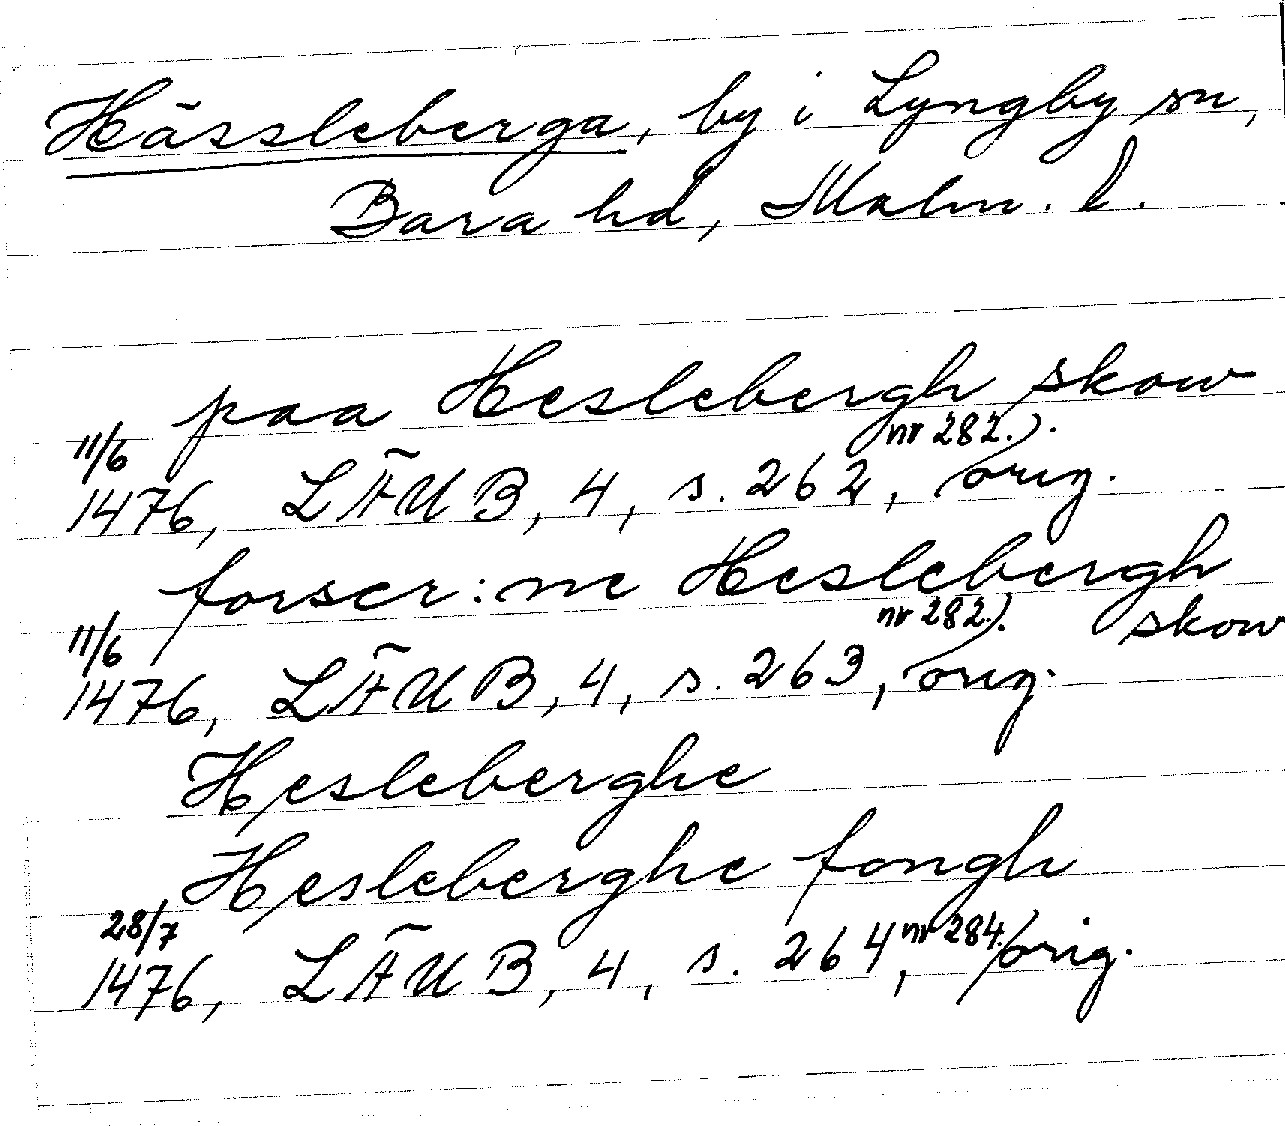 Hässleberga, by i Lyngby sn,
Bara hd, Malm. l.
paa Heslebergh skow
11/6 nr 282.).
1476, LÄUB, 4, s. 262, orig.
forscr:ne Heslebergh
skow
11/6 nr 282.).
1476, LÄUB, 4, s. 263, orig.
Hesleberghe
Hesleberghe fongh
28/7 nr 284.
1476, LÄUB, 4, s. 264, orig.